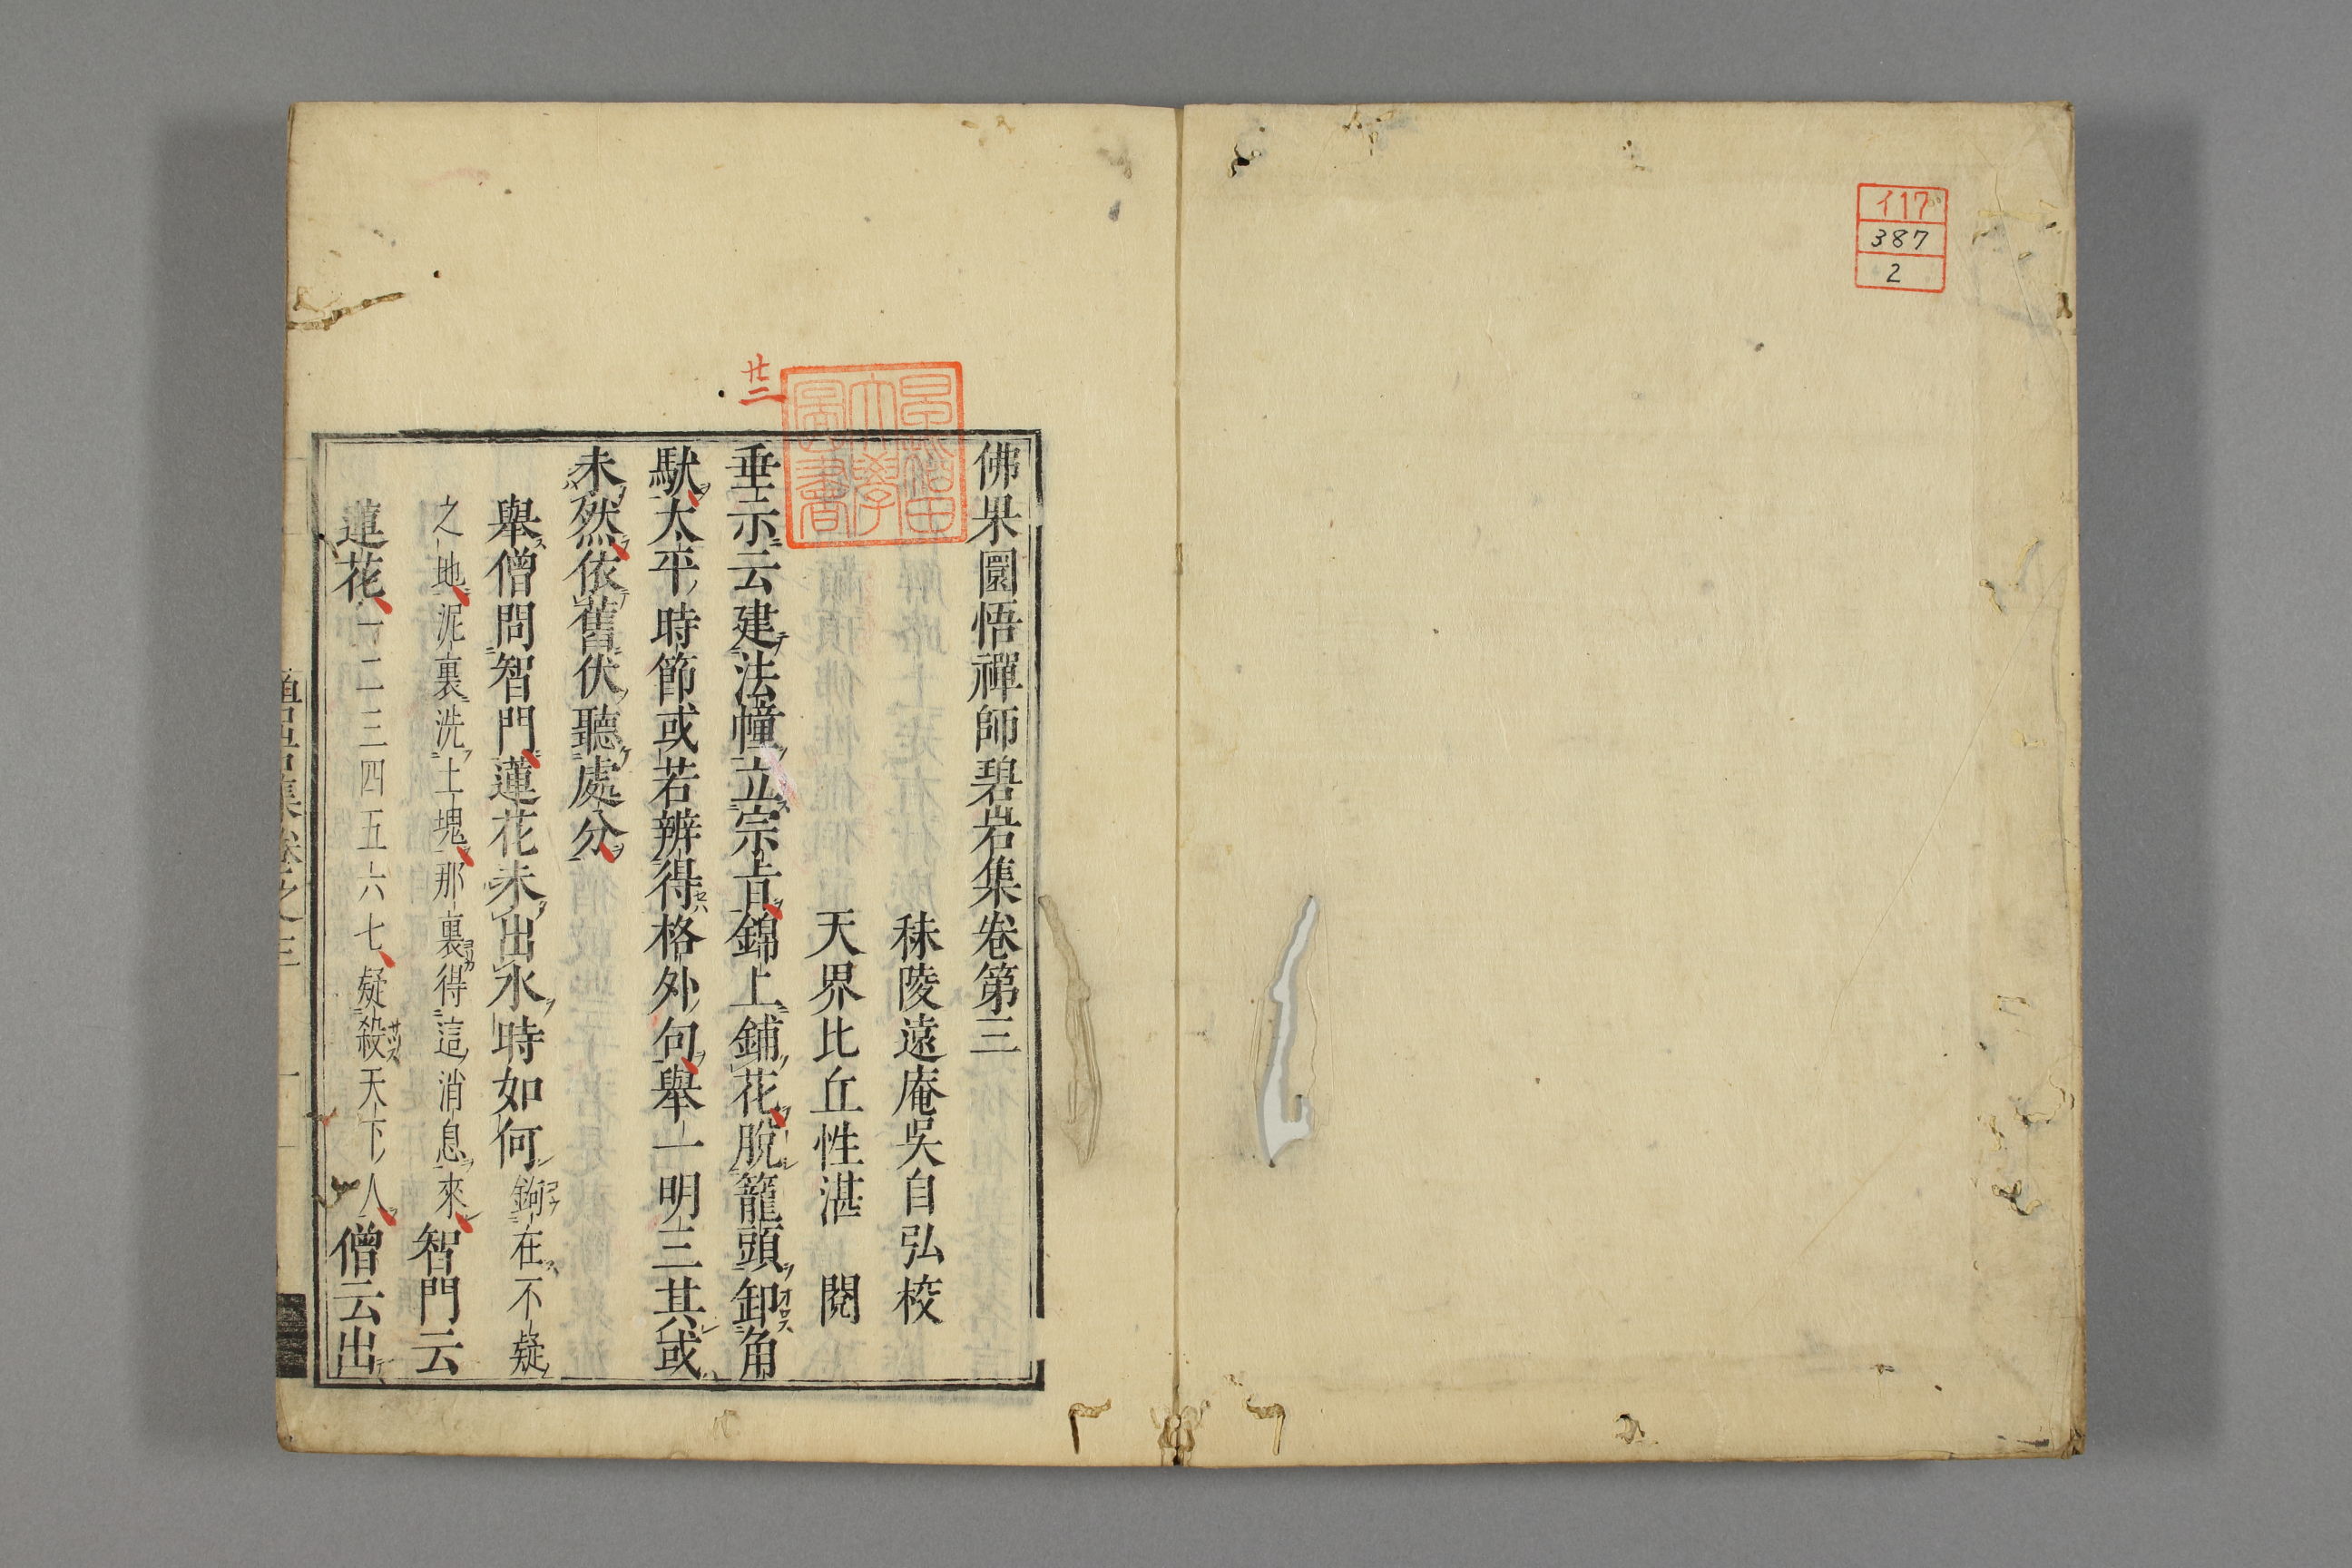 117
387
2
佛果圜悟禪師碧岩集卷第三
秣陵遠庵吳自弘校
天界比丘性湛　閱
廿二
垂示云建法幢立宗旨錦上鋪花脫籠頭卸角
馱太平時節或若辨得格外句舉一明三其或
未然依舊伏聽處分
舉僧問智門蓮花未出水時如何鉤在不疑
之地泥裏洗土塊那裏得這消息來智門云
蓮花一二三四五六七疑殺天下人僧云出